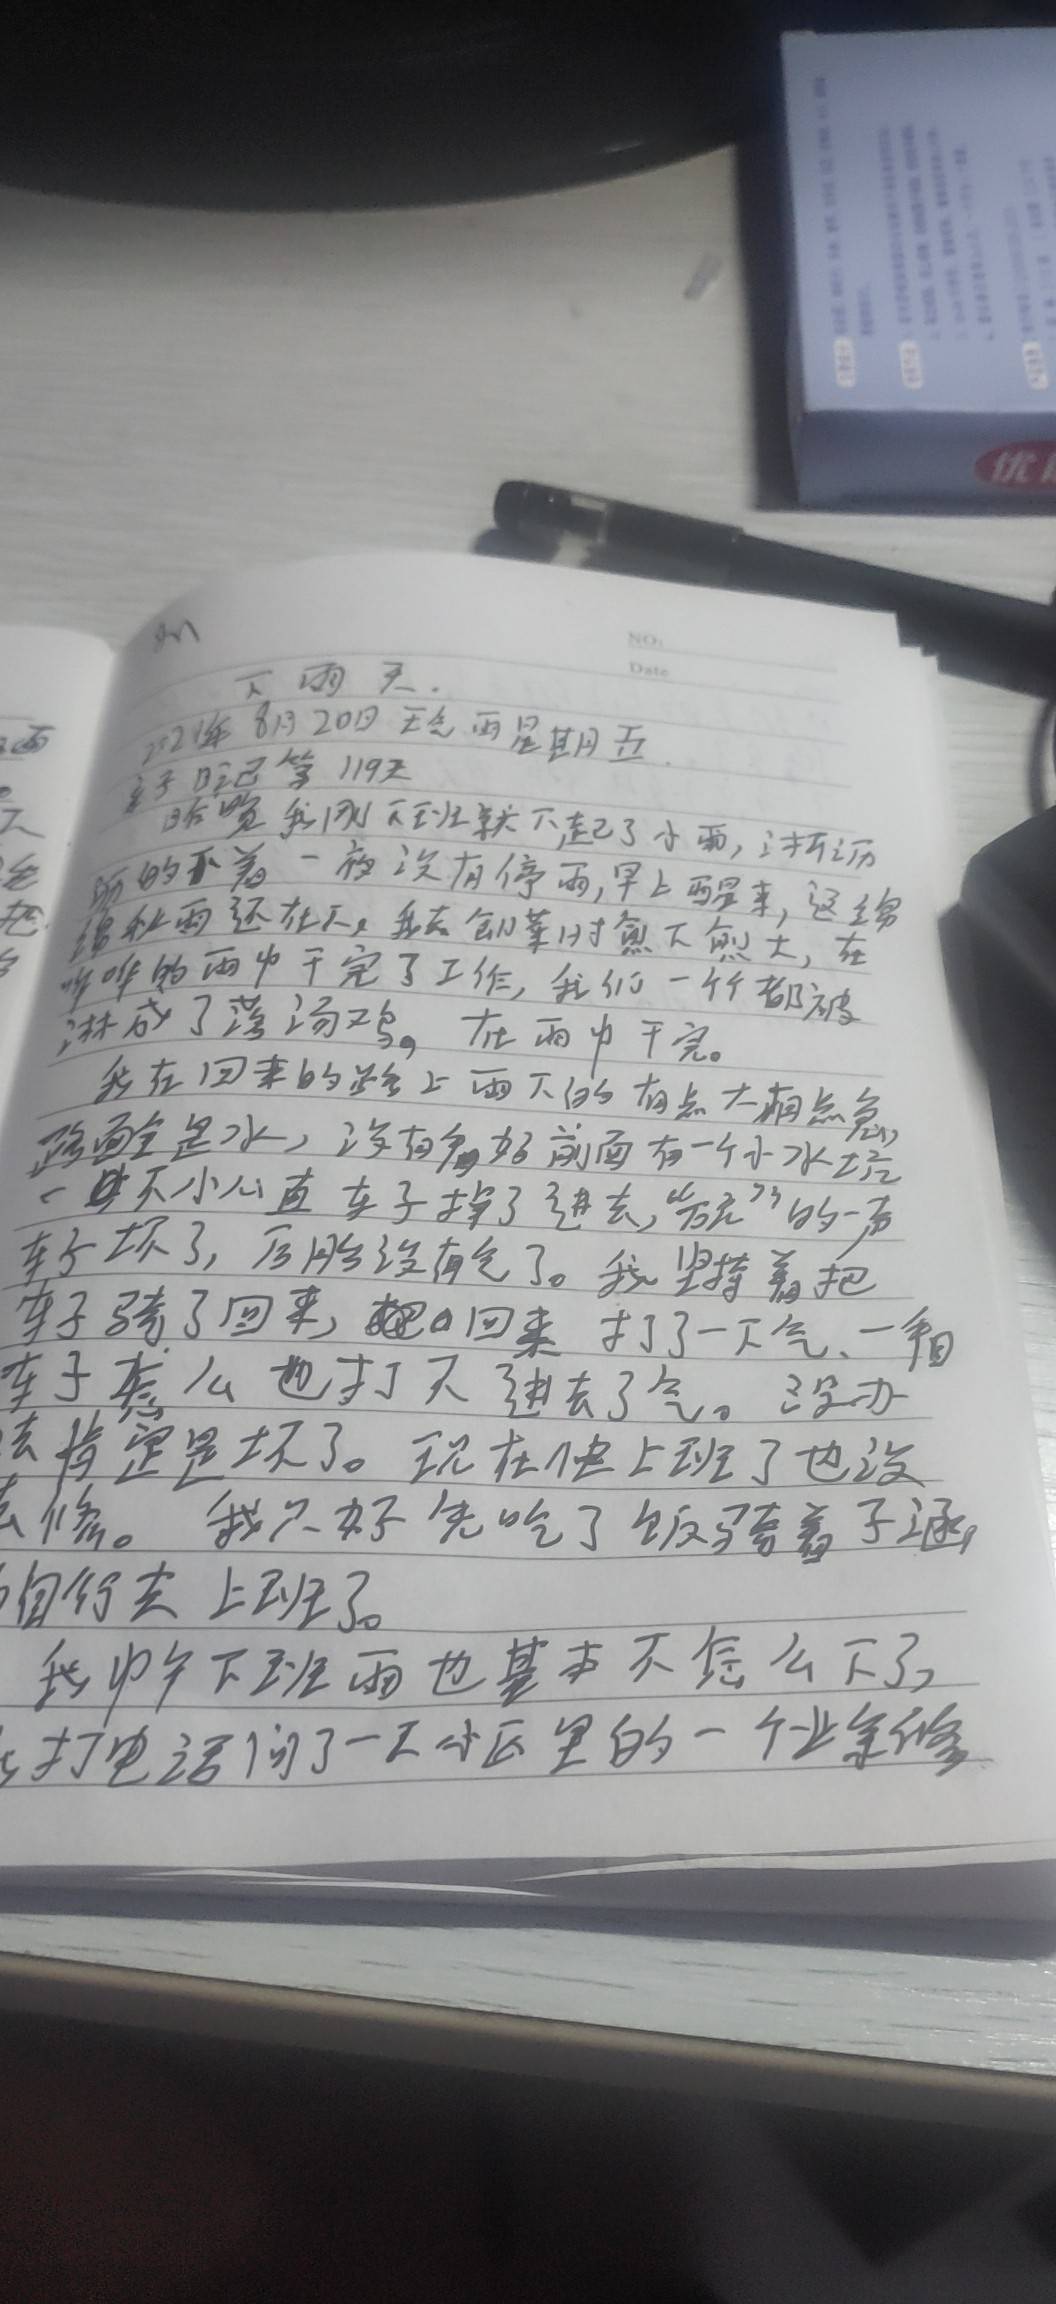 NO:
Date
下雨天.
2021年8月20日 天气雨星期五.
亲子日记第119天
昨晚我刚下班就下起了小雨,淅沥
沥的下着一夜没有停雨,早上醒来,这绵
绵秋雨还在下,我去创業时愈下愈大,在
哗哗的雨中干完了工作,我们一个个都被
淋成了落汤鸡。在雨中干完。
我在回来的路上雨下的有点大有点急,
路面全是水,没有看好前面有一个小水坑
一不小心直车子掉了进去,“”的一声
车子坏了,后胎没有气了。我坚持着把
车子骑了回来,回来打了一下气、一
车子怎么也打不进去了气。没办
法肯定是坏了。现在快上班了也没
去修。我只好先吃了饭骑着子涵
的自行去上班了。
我中午下班雨也基本不怎么下了,
打电话问了一下小区里的一个业余修
优